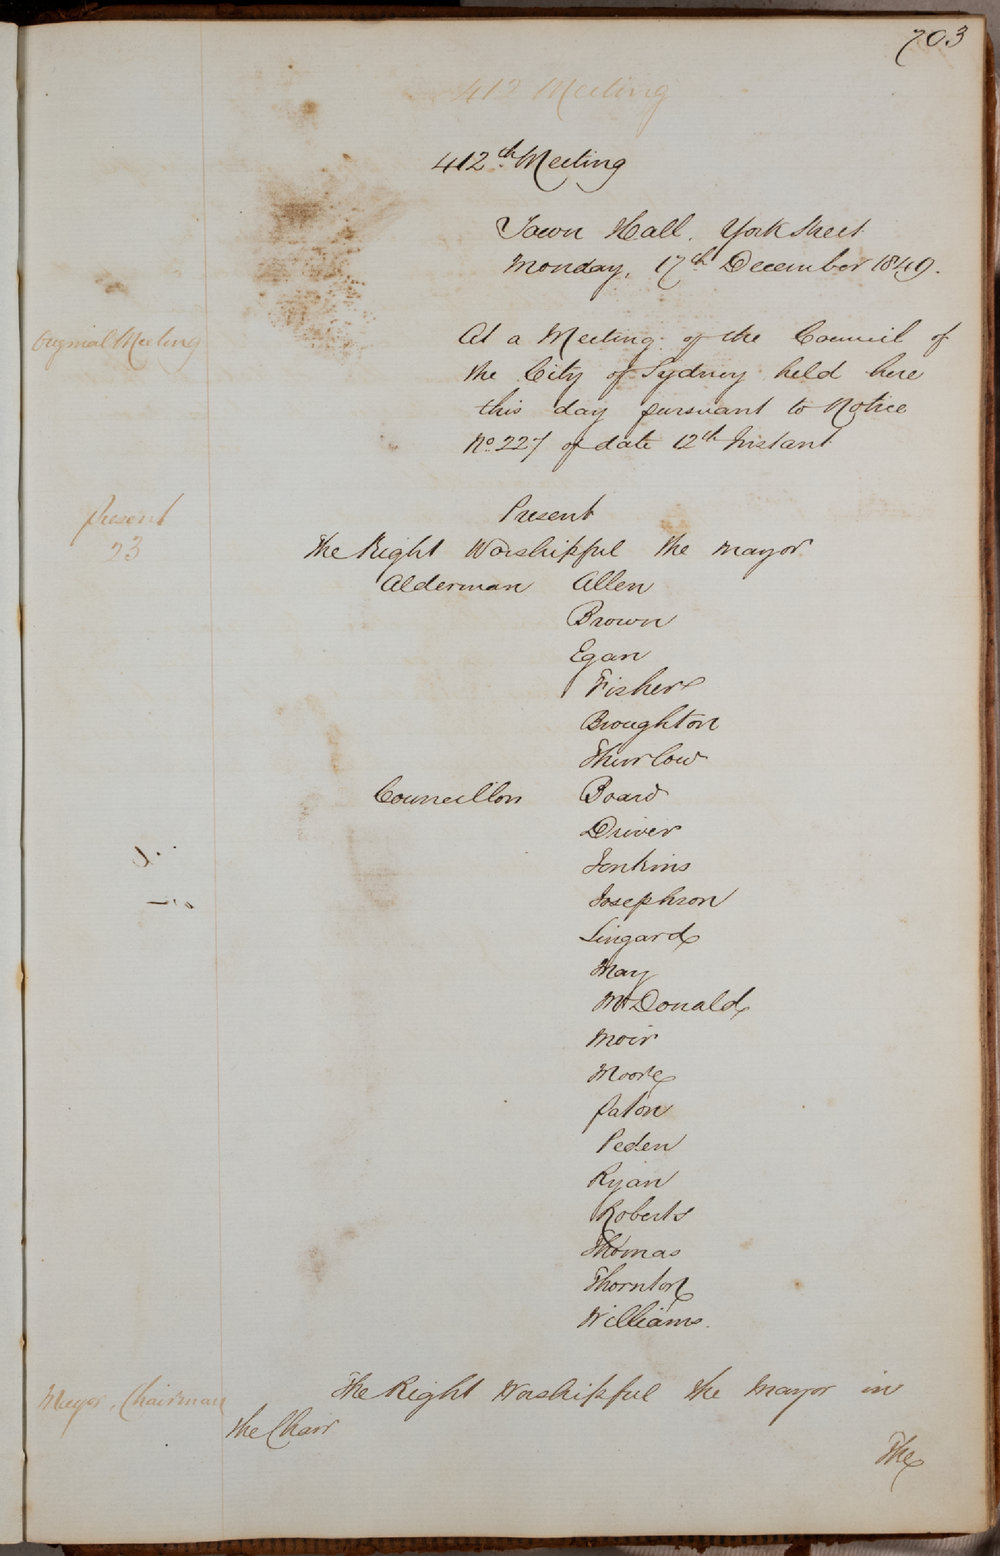 703
412 Meeting
412th Meeting
Town Hall. York Street
Monday, 17th December 1849.
Original Meeting
At a Meeting of the Council of
the City of Sydney held here
this day pursuant to Notice
No. 227 of date 12th Instant
Present
23
Present
The Right Worshipful the Mayor
Alderman Allen
Brown
Egan
Fisher
Broughton
Thurlow
Councillors Board
Driver
Jenkins
Josephson
Lingard
May
McDonald
Moir
Moore
Paton
Peden
Ryan
Roberts
Thomas
Thornton
Williams.
Mayor, Chairman
The Right Worshipful the Mayor in
the Chair
The